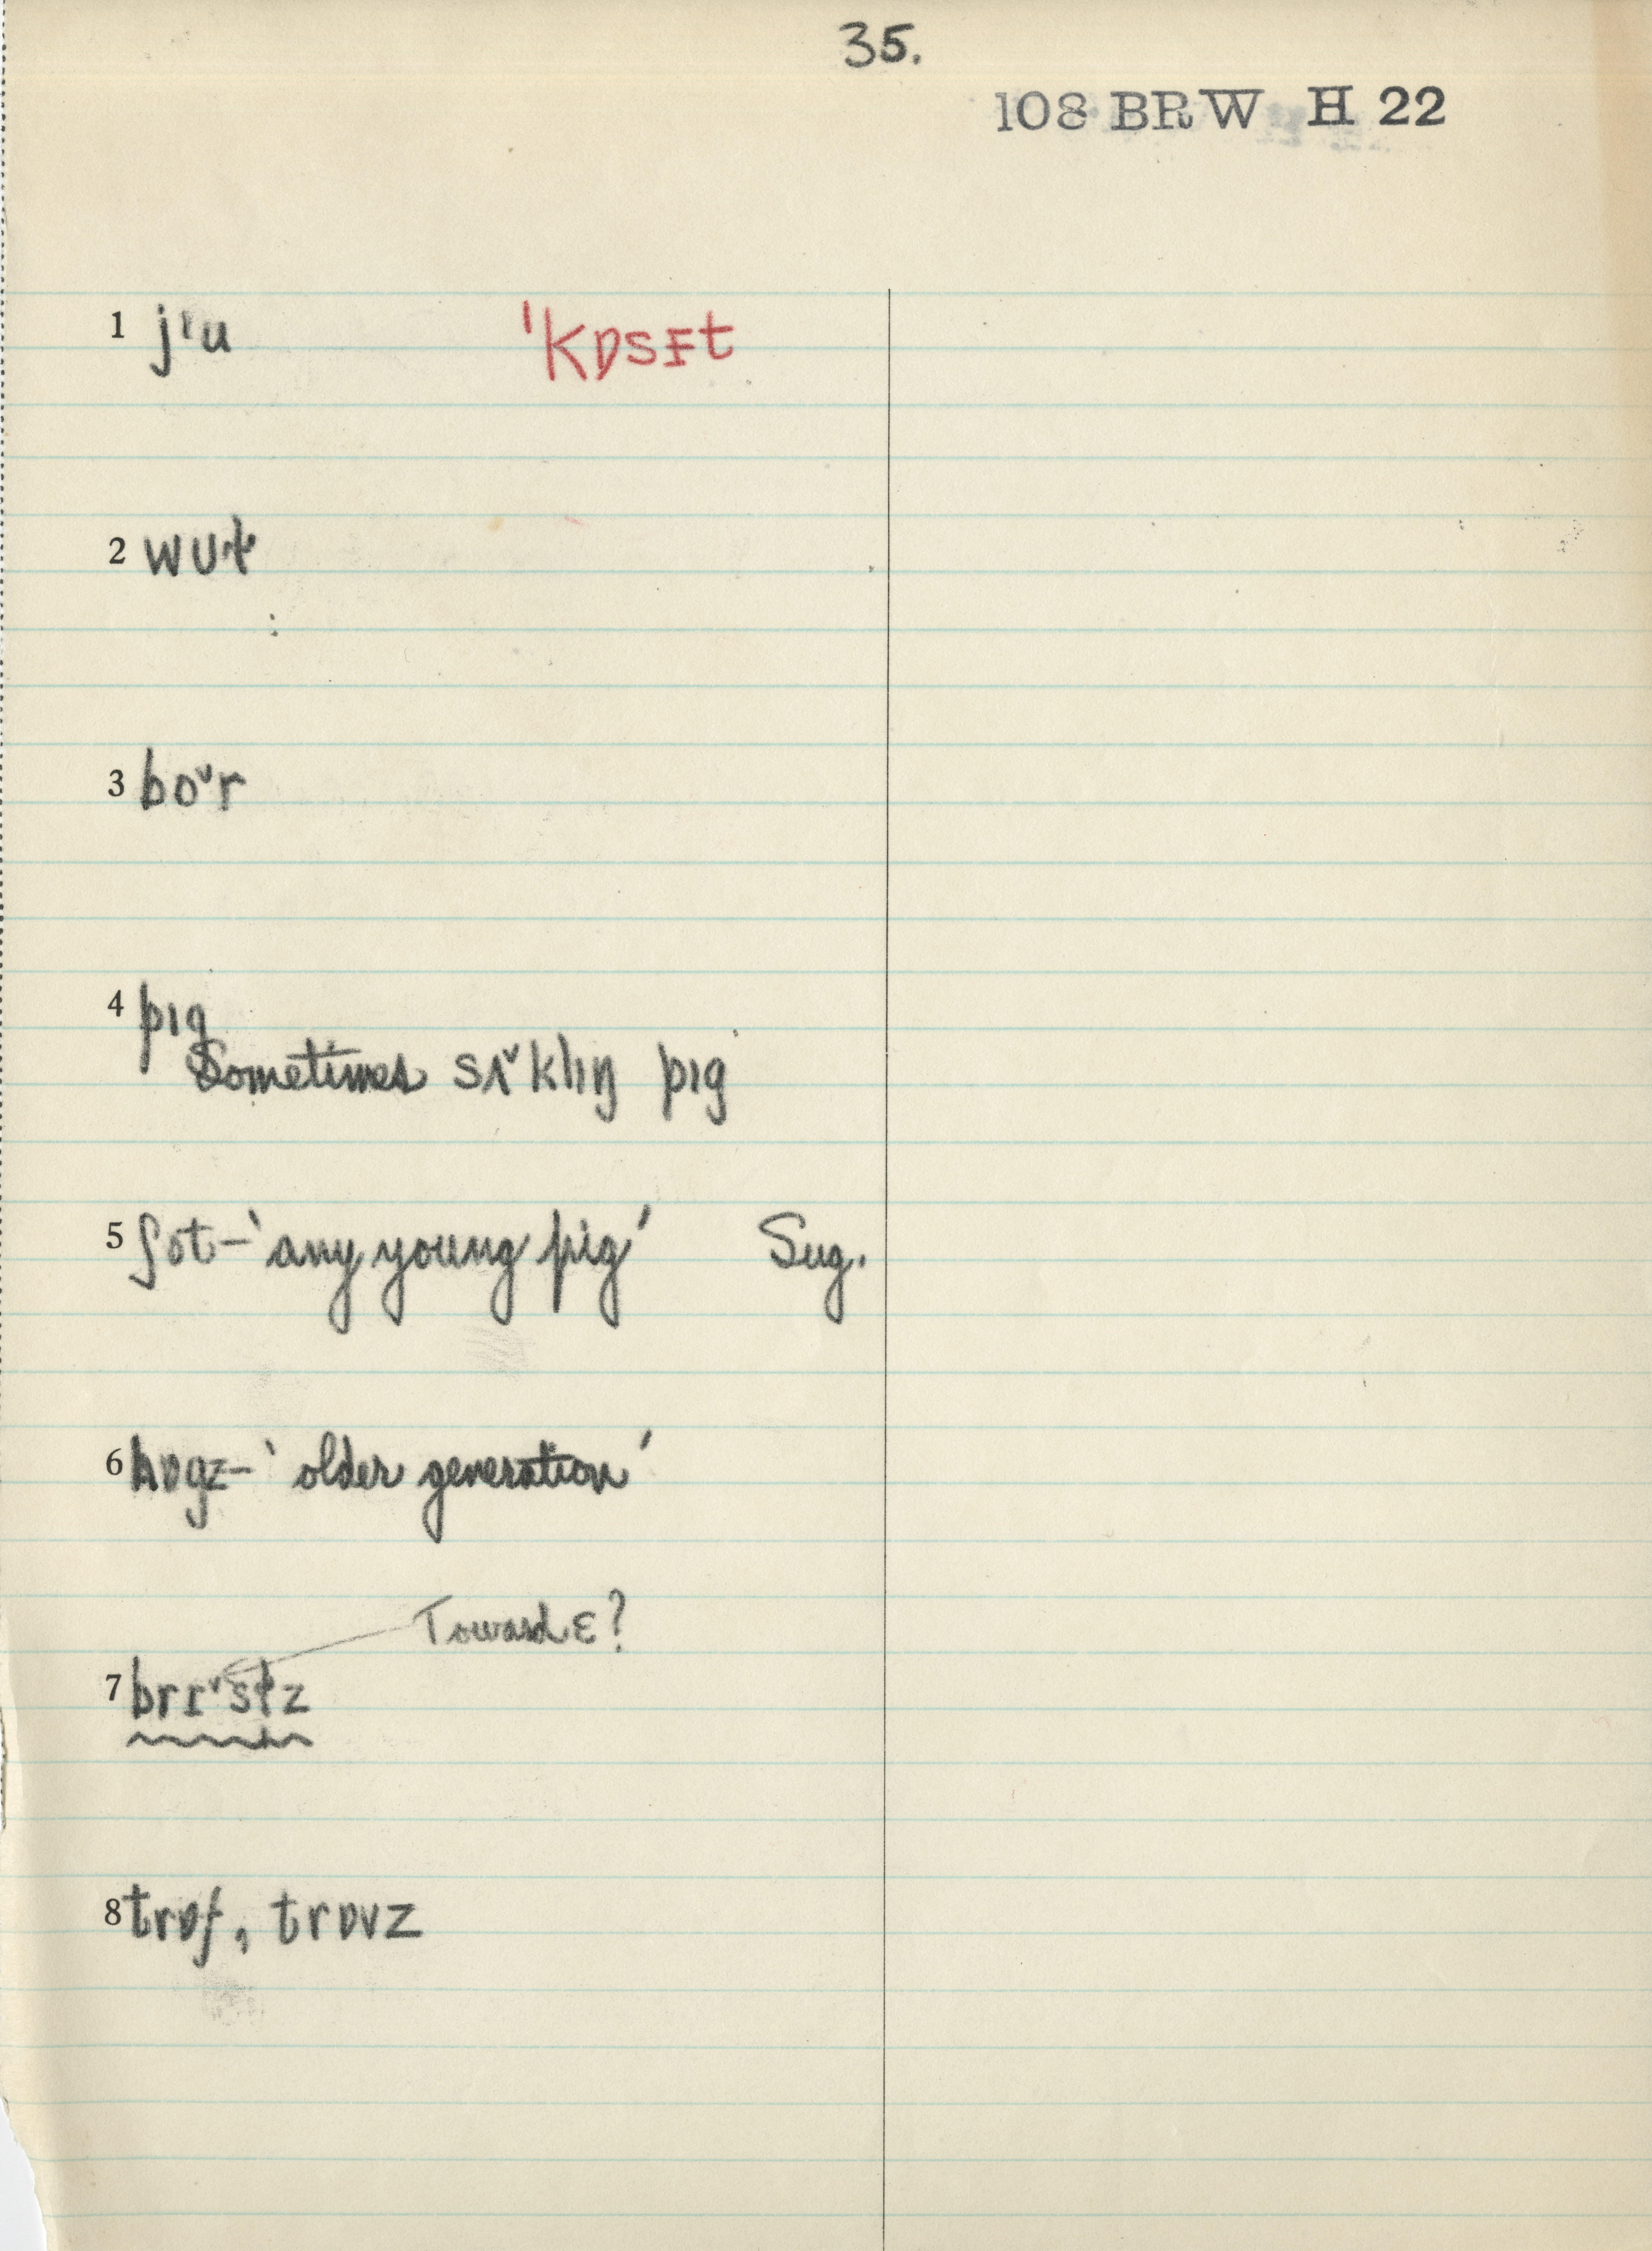 35.
108 BRW H 22
1 jᶦu 'kɒsᵻt
2 wʊɫ
3 bo˅r
4 pɪg
Sometimes sʌ˅klɪŋ pɪg
5 ʃot – 'any young pig' Sug.
6 hɒgz – 'older generation'
Toward ɛ?
7 brɪ˅sɫz
8 trɒf, trɒvz